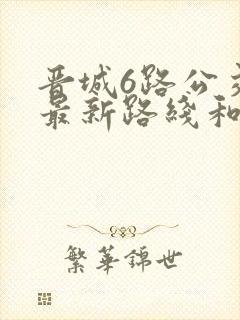 晋城6路公
最新路线和
繁华锦世